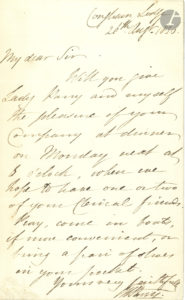 26th Augt, 1853.
My dear Sir,
Will you give
Lady Parry and myself
the pleasure of your
Company at dinner
on Monday next at
o'clock, when we
hope to have one or two
of your Clerical friends.
Pray, come in boots,
if more convenient, or
bring a pair of shoes
in your pocket.
Yours very faithfully